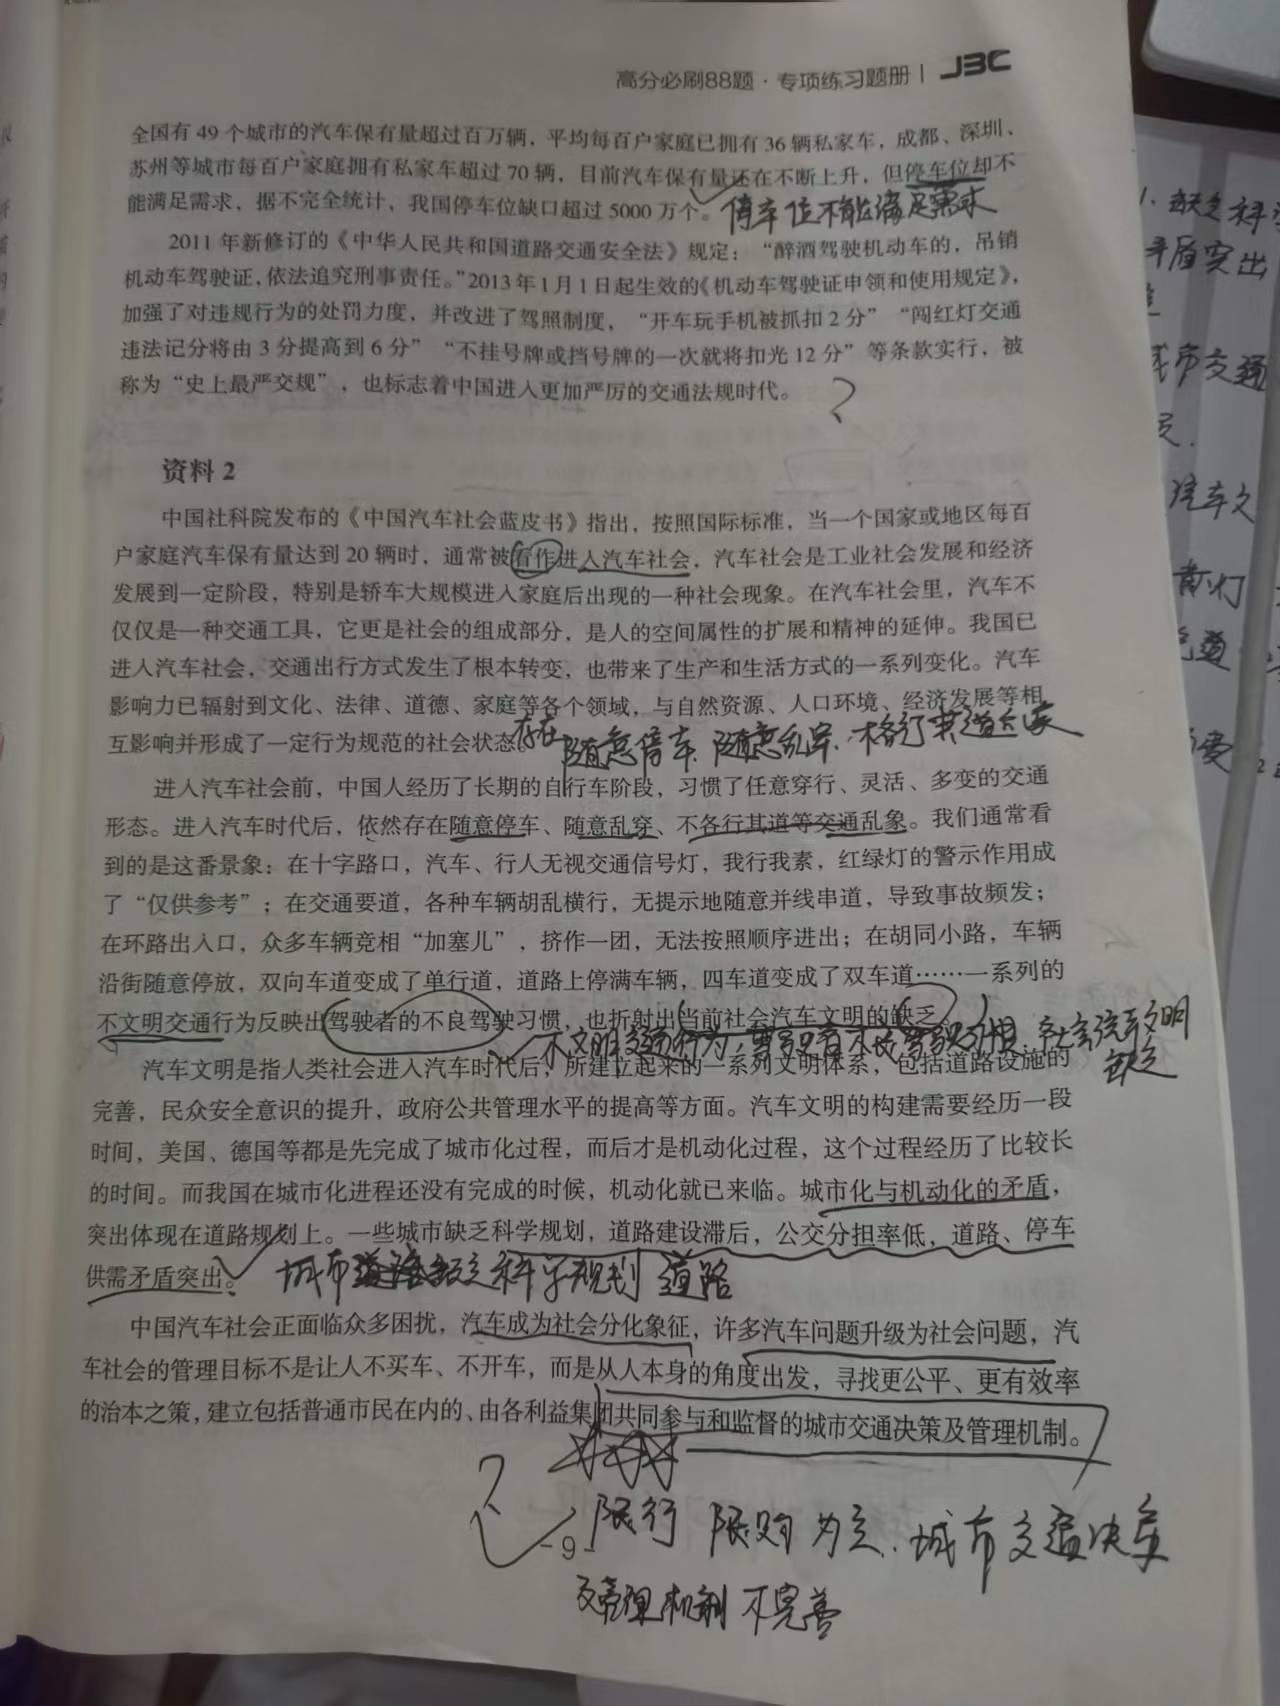 高分必刷88题·专项练习题册 | JBC
全国有 49 个城市的汽车保有量超过百万辆，平均每百户家庭已拥有 36 辆私家车，成都、深圳、
苏州等城市每百户家庭拥有私家车超过 70 辆，目前汽车保有量还在不断上升，但停车位却不
能满足需求，据不完全统计，我国停车位缺口超过 5000 万个。
停车位不能满足需求
2011 年新修订的《中华人民共和国道路交通安全法》规定：“醉酒驾驶机动车的，吊销
机动车驾驶证，依法追究刑事责任。”2013 年 1 月 1 日起生效的《机动车驾驶证申领和使用规定》，
加强了对违规行为的处罚力度，并改进了驾照制度，“开车玩手机被抓扣 2 分”“闯红灯交通
违法记分将由 3 分提高到 6 分”“不挂号牌或挡号牌的一次就将扣光 12 分”等条款实行，被
称为“史上最严交规”，也标志着中国进入更加严厉的交通法规时代。
?
资料 2
中国社科院发布的《中国汽车社会蓝皮书》指出，按照国际标准，当一个国家或地区每百
户家庭汽车保有量达到 20 辆时，通常被看作进入汽车社会，汽车社会是工业社会发展和经济
发展到一定阶段，特别是轿车大规模进入家庭后出现的一种社会现象。在汽车社会里，汽车不
仅仅是一种交通工具，它更是社会的组成部分，是人的空间属性的扩展和精神的延伸。我国已
进入汽车社会，交通出行方式发生了根本转变，也带来了生产和生活方式的一系列变化。汽车
影响力已辐射到文化、法律、道德、家庭等各个领域，与自然资源、人口环境、经济发展等相
互影响并形成了一定行为规范的社会状态。
存在随意停车、随意乱穿、
进入汽车社会前，中国人经历了长期的自行车阶段，习惯了任意穿行、灵活、多变的交通
形态。进入汽车时代后，依然存在随意停车、随意乱穿、不各行其道等交通乱象。我们通常看
到的是这番景象：在十字路口，汽车、行人无视交通信号灯，我行我素，红绿灯的警示作用成
了“仅供参考”；在交通要道，各种车辆胡乱横行，无提示地随意并线串道，导致事故频发；
在环路出入口，众多车辆竞相“加塞儿”，挤作一团，无法按照顺序进出；在胡同小路，车辆
沿街随意停放，双向车道变成了单行道，道路上停满车辆，四车道变成了双车道……一系列的
不文明交通行为反映出驾驶者的不良驾驶习惯，也折射出当前社会汽车文明的缺乏。
不文明交通行为，驾驶者不良驾驶习惯，社会汽车文明
缺乏
汽车文明是指人类社会进入汽车时代后，所建立起来的一系列文明体系，包括道路设施的
完善，民众安全意识的提升，政府公共管理水平的提高等方面。汽车文明的构建需要经历一段
时间，美国、德国等都是先完成了城市化过程，而后才是机动化过程，这个过程经历了比较长
的时间。而我国在城市化进程还没有完成的时候，机动化就已来临。城市化与机动化的矛盾，
突出体现在道路规划上。一些城市缺乏科学规划，道路建设滞后，公交分担率低，道路、停车
供需矛盾突出。
城市缺乏科学规划 道路
中国汽车社会正面临众多困扰，汽车成为社会分化象征，许多汽车问题升级为社会问题，汽
车社会的管理目标不是让人不买车、不开车，而是从人本身的角度出发，寻找更公平、更有效率
的治本之策，建立包括普通市民在内的、由各利益集团共同参与和监督的城市交通决策及管理机制。
?
限行 限购为主，城市交通决策
- 9 -
及管理机制不完善
1、缺乏科
矛盾突出
城市交通
汽车文